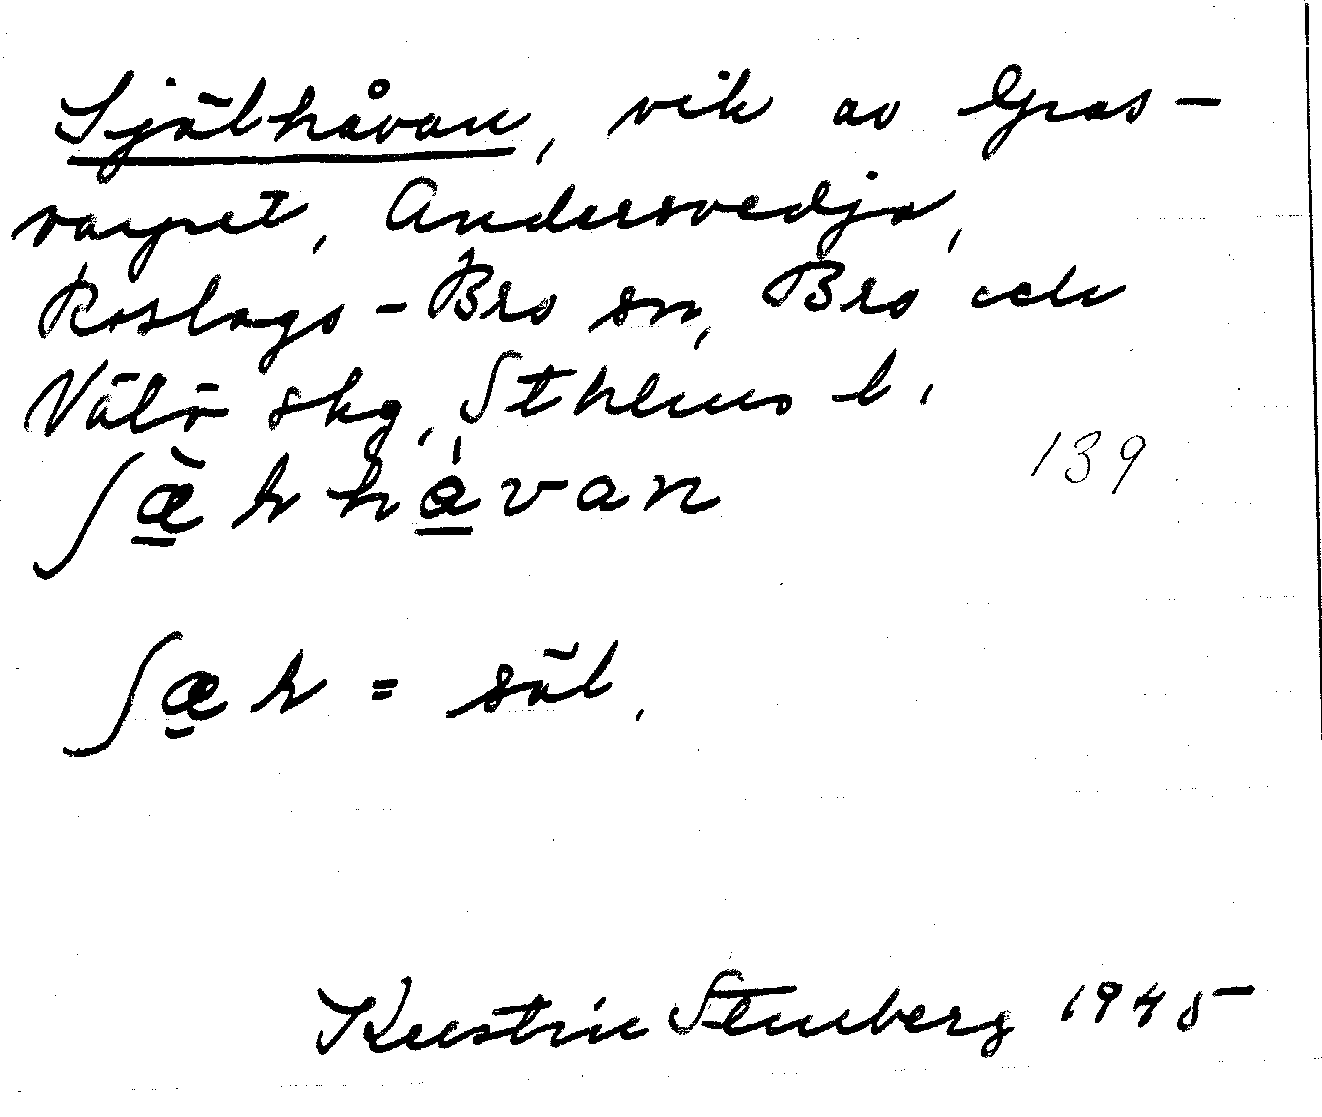 Själhåvan, vik av Gras-
varpet, Andersvedja,
Roslags-Bro sn, Bro och
Vätö skg, Sthlms l.
139
ʃæ̀lhåvan
ʃæl = säl.
Kerstin Stenberg 1945